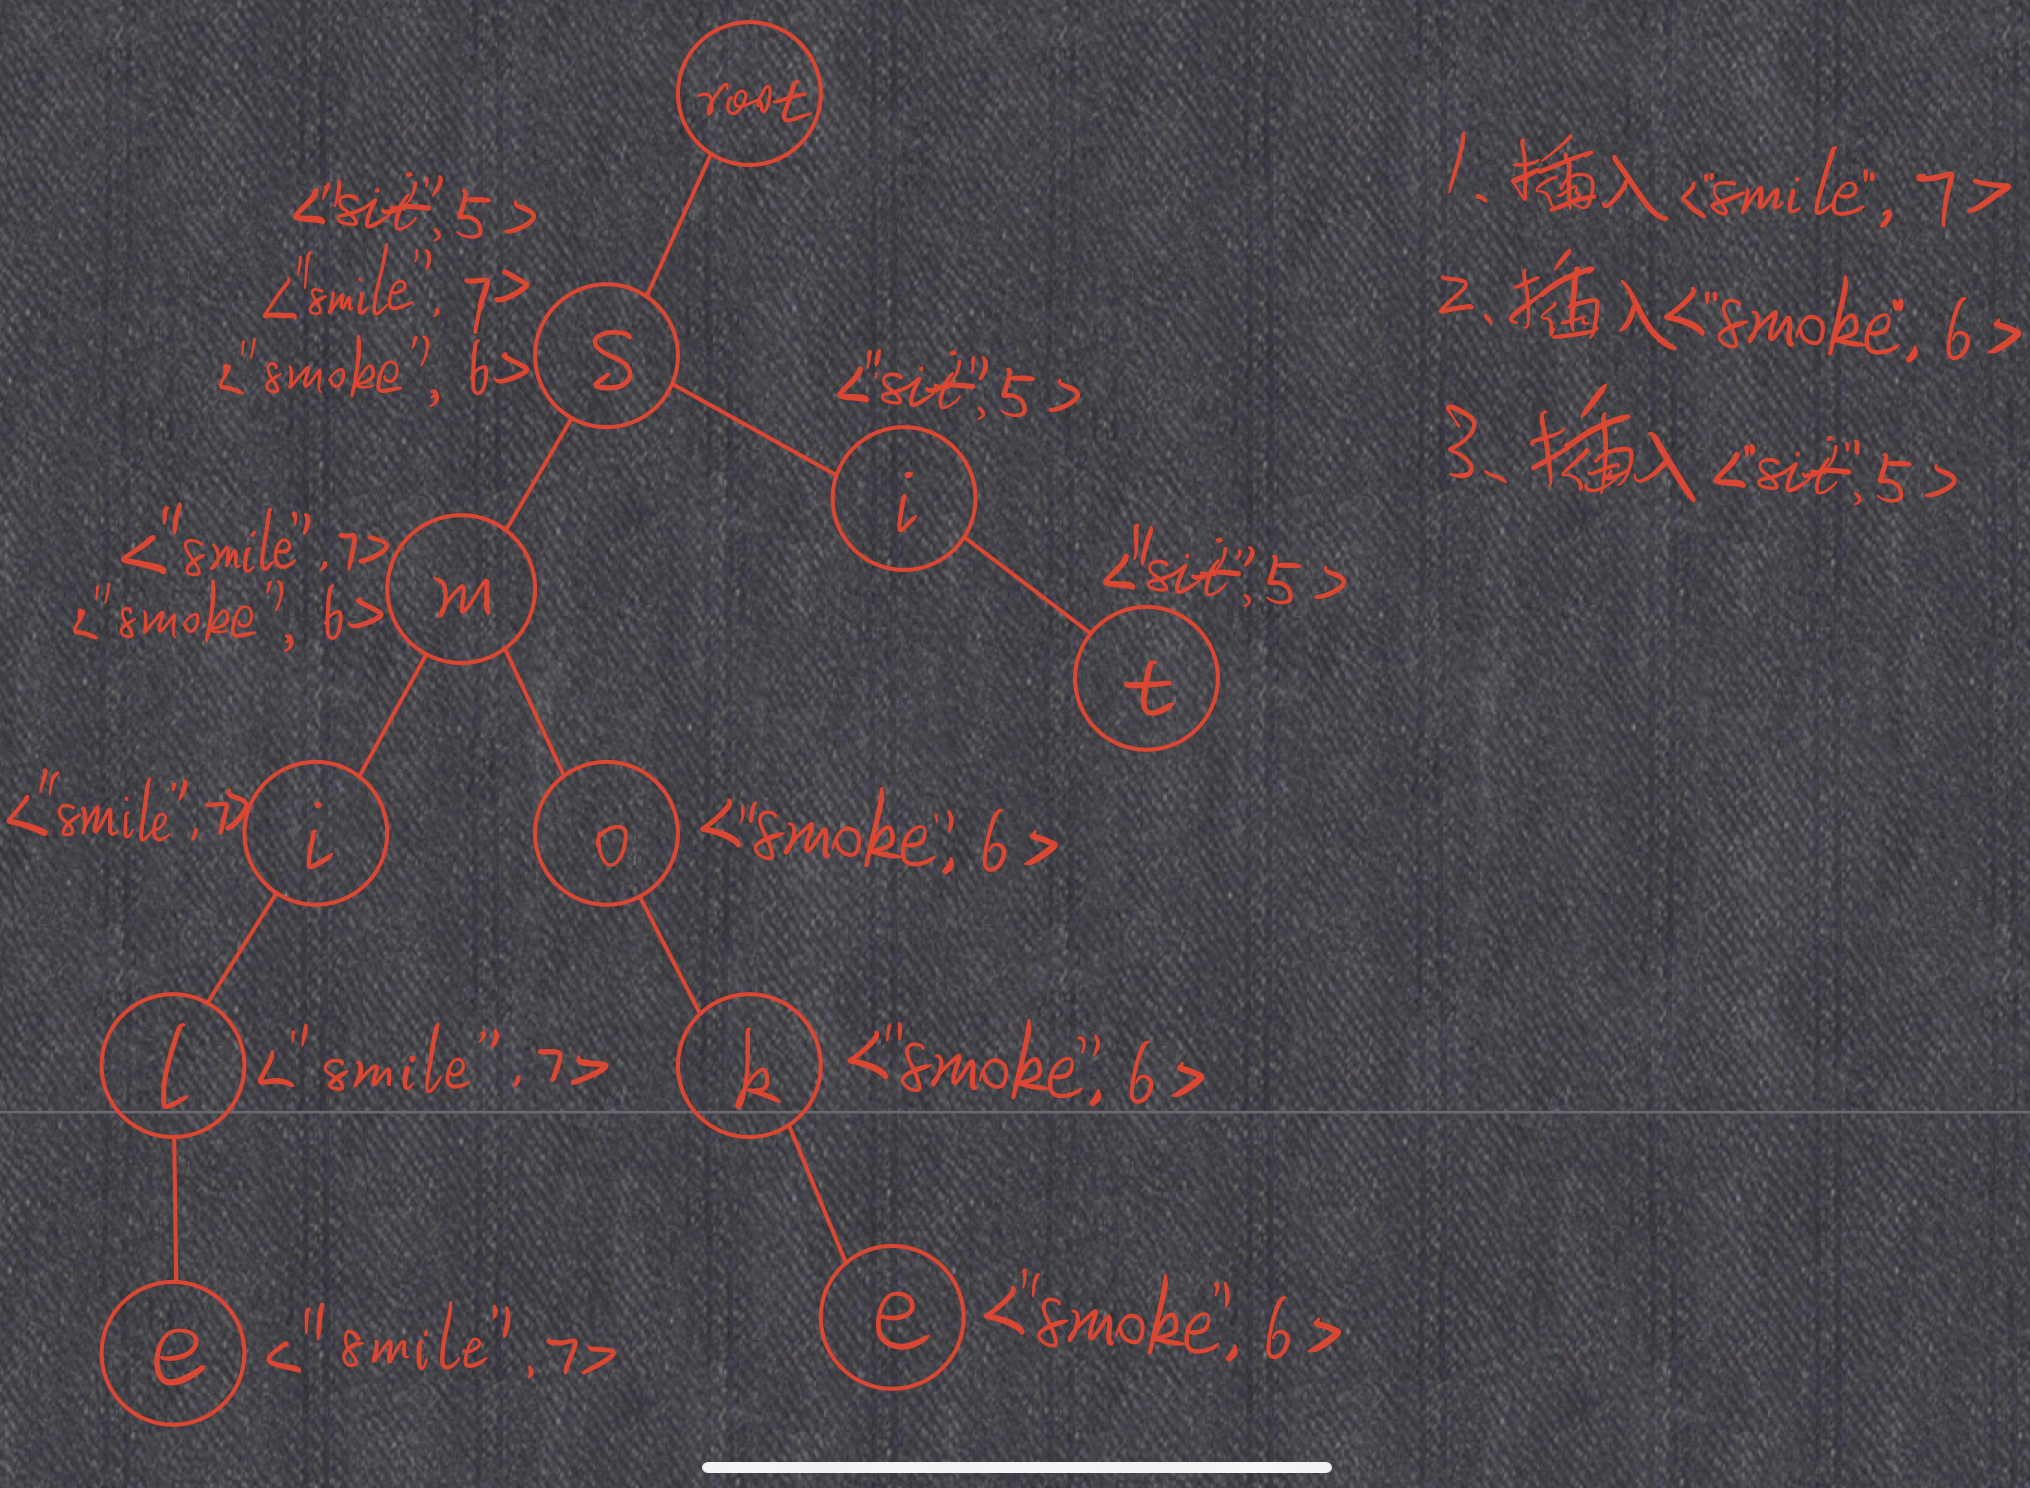 root
<"sit",5>
<"smile",7>
<"smoke",6>
S
<"sit",5>
i
<"sit",5>
t
<"smile",7>
<"smoke",6>
m
<"smile",7>
i
o
<"smoke",6>
l
<"smile",7>
k
<"smoke",6>
e
<"smile",7>
e
<"smoke",6>
1、插入<"smile",7>
2、插入<"smoke",6>
3、插入<"sit",5>